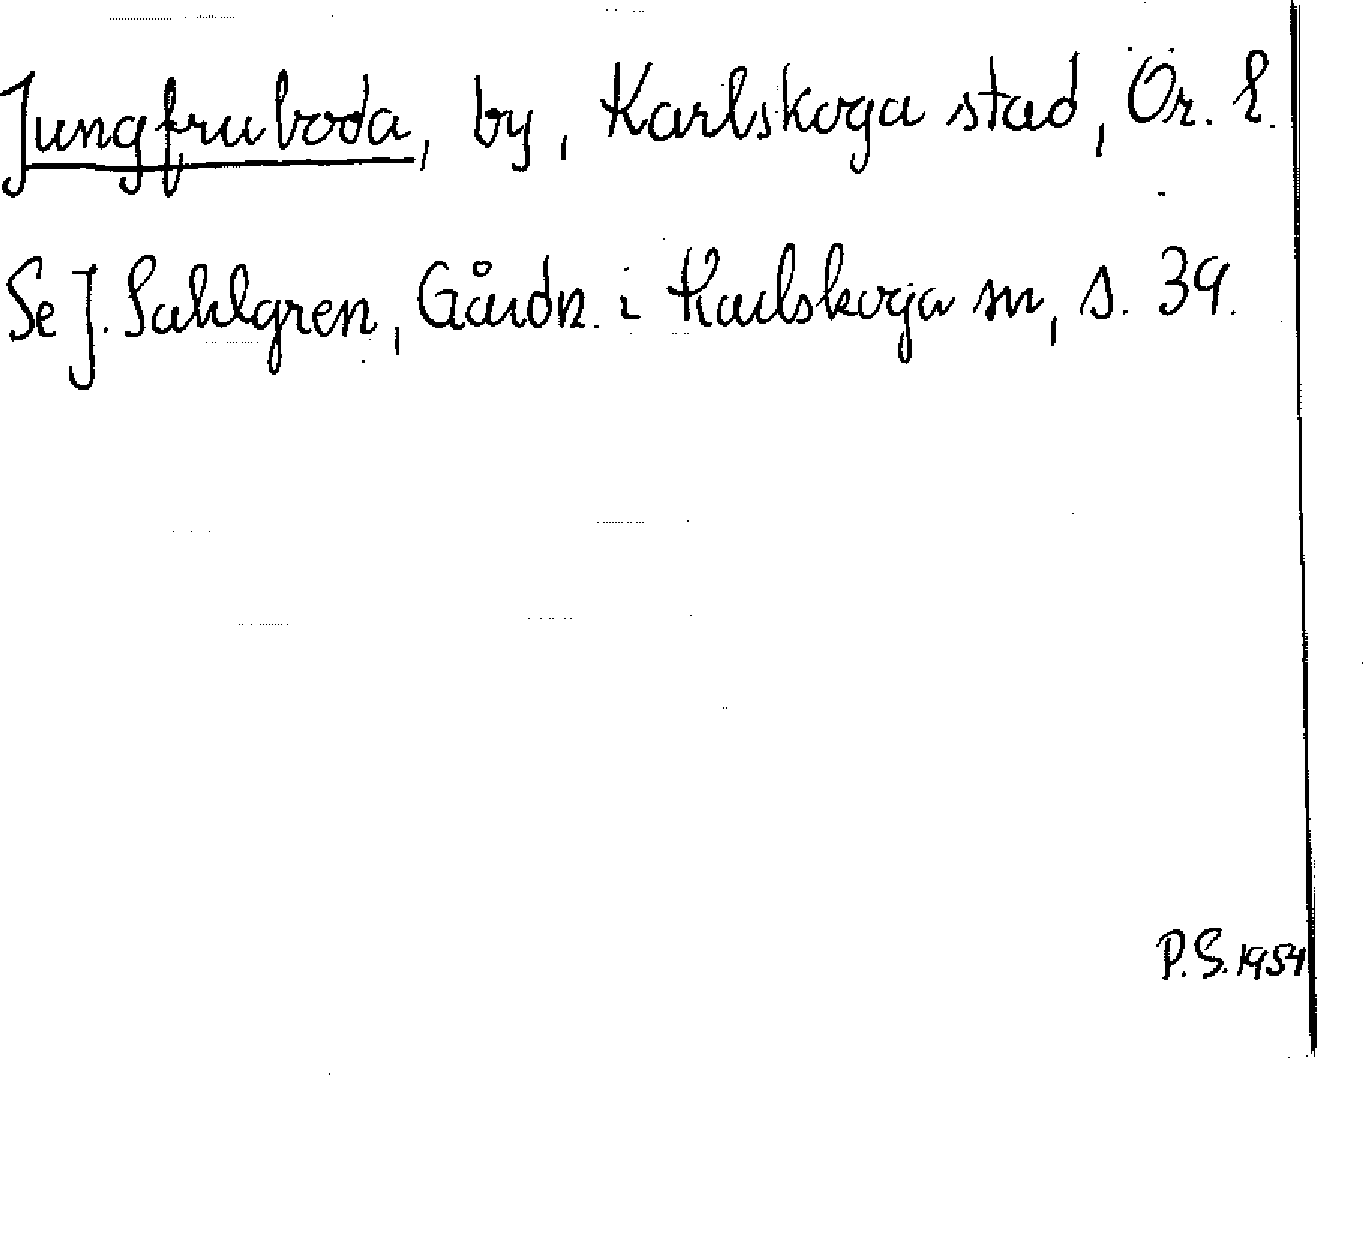 Jungfruboda, by, Karlskoga stad, Ör. l.
Se J. Sahlgren, Gårdn. i Karlskoga sn, s. 39.
P.S. 1954